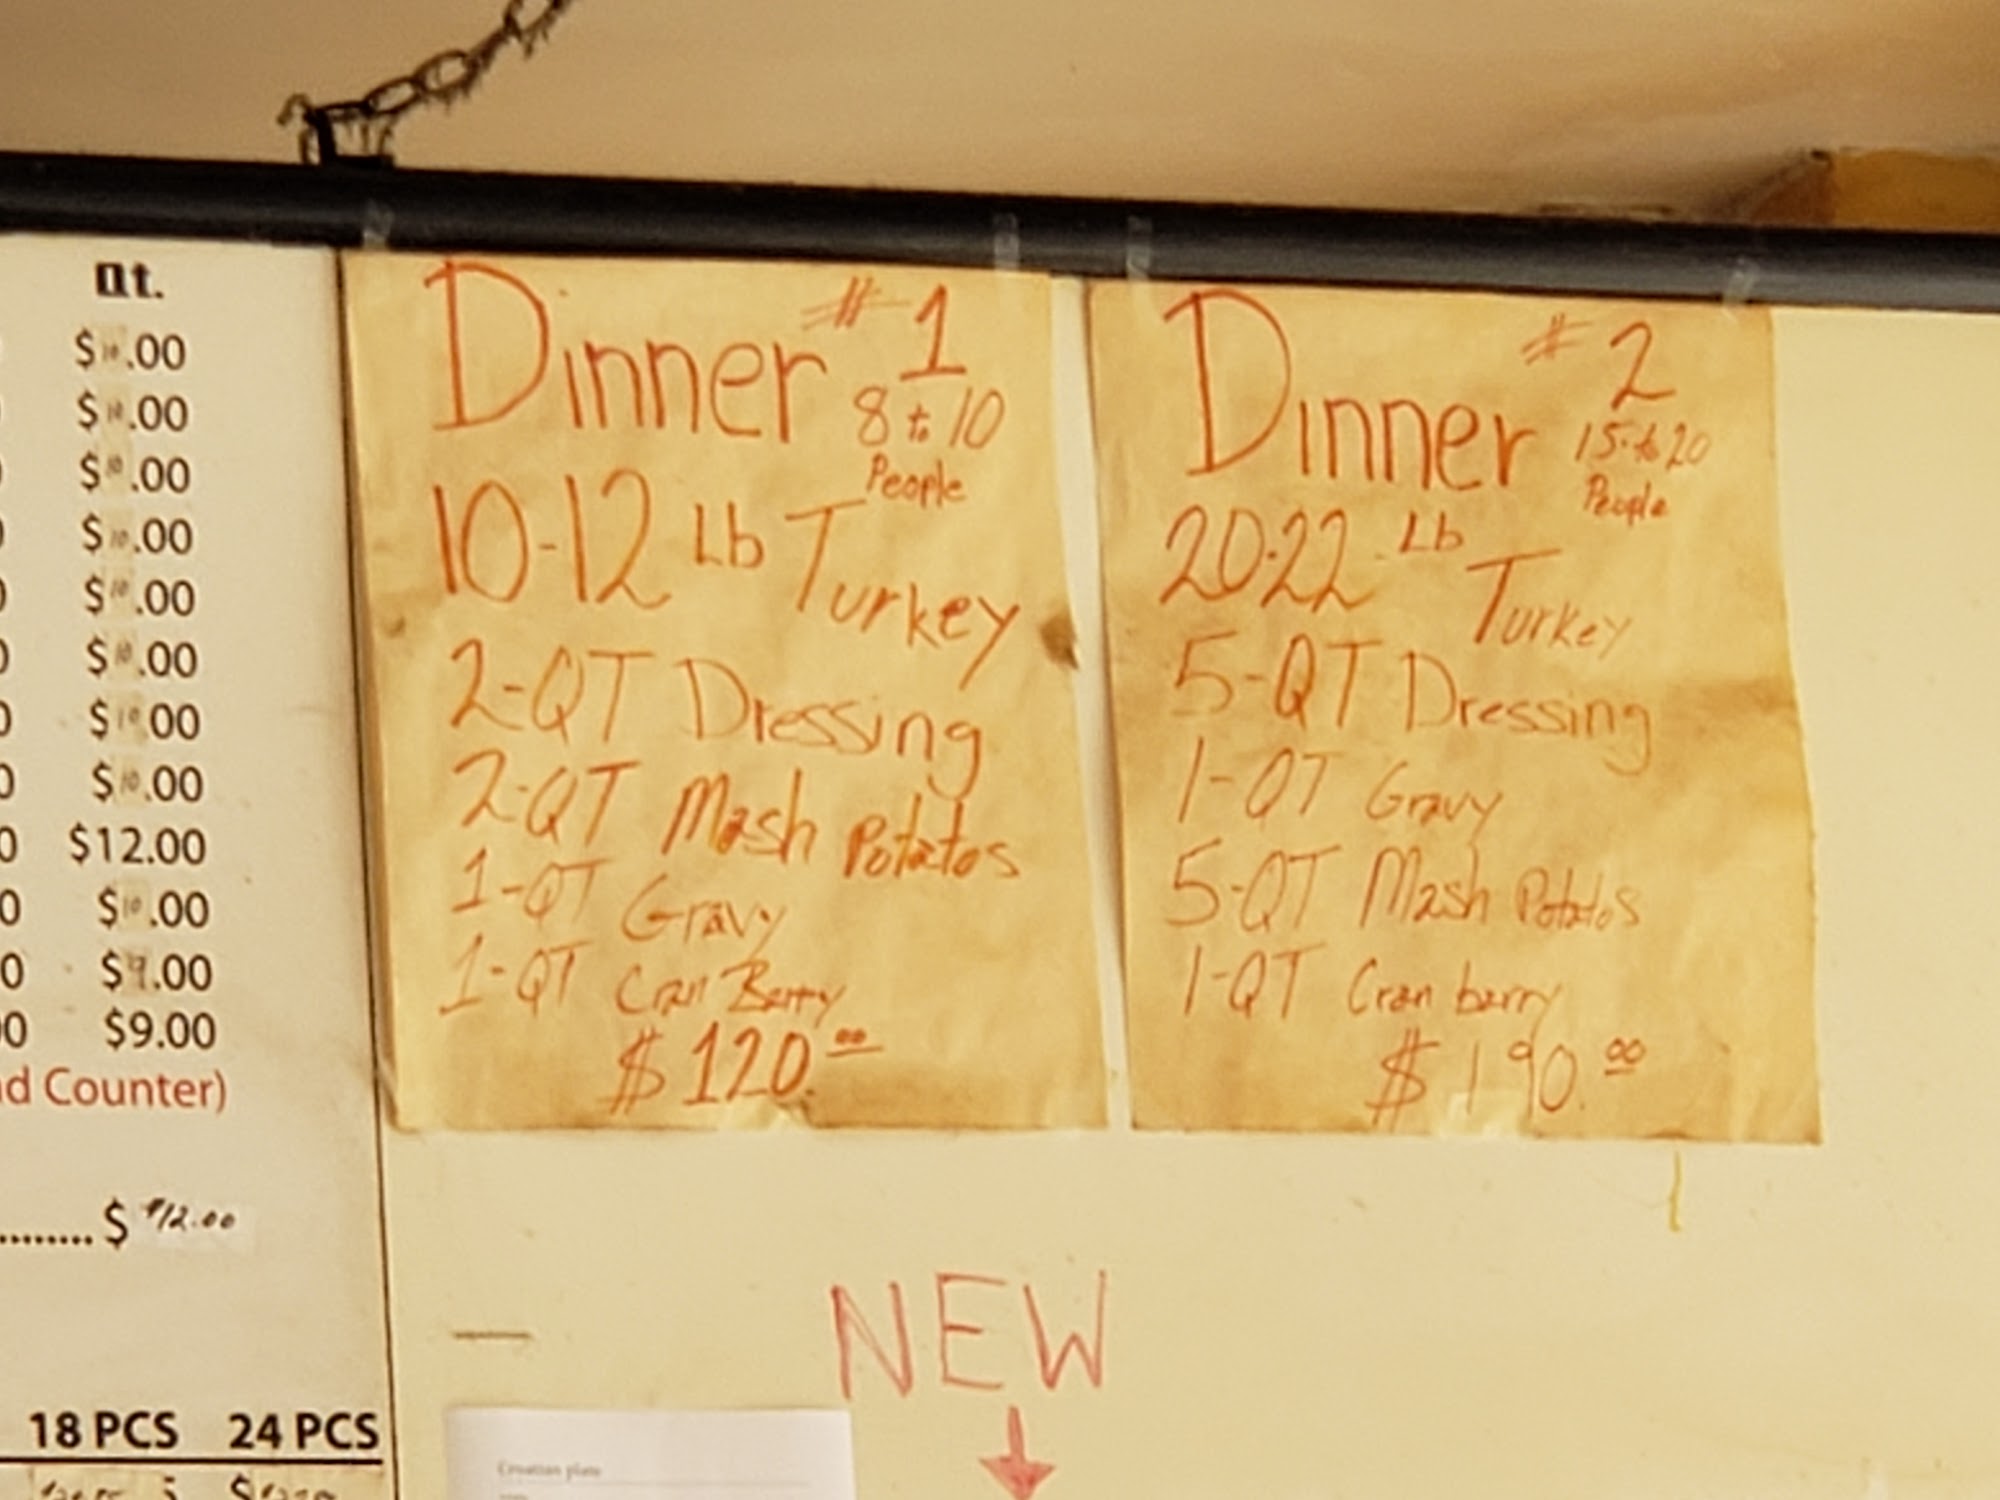 Qt.
$10.00
$10.00
$10.00
$10.00
$10.00
$10.00
$10.00
$10.00
$12.00
$10.00
$9.00
$9.00
Counter)
$ $12.00
18 PCS 24 PCS
Dinner #1
8 to 10
People
10-12 Lb Turkey
2-QT Dressing
2-QT Mash Potatos
1-QT Gravy
1-QT Cran Berry
$120.00
Dinner #2
15 to 20
People
20-22 Lb
Turkey
5-QT Dressing
1-QT Gravy
5-QT Mash Potatos
1-QT Cran berry
$190.00
NEW
Croatian plate